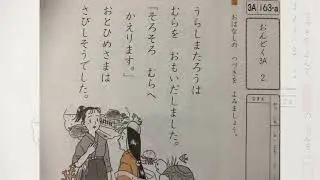 3A 163-a
おんどく
3A
2
おはなしの つづきを よみましょう。
うらしまたろうは
むらを おもいだしました。
「そろそろ むらへ
かえります。」
おとひめさまは
さびしそうでした。